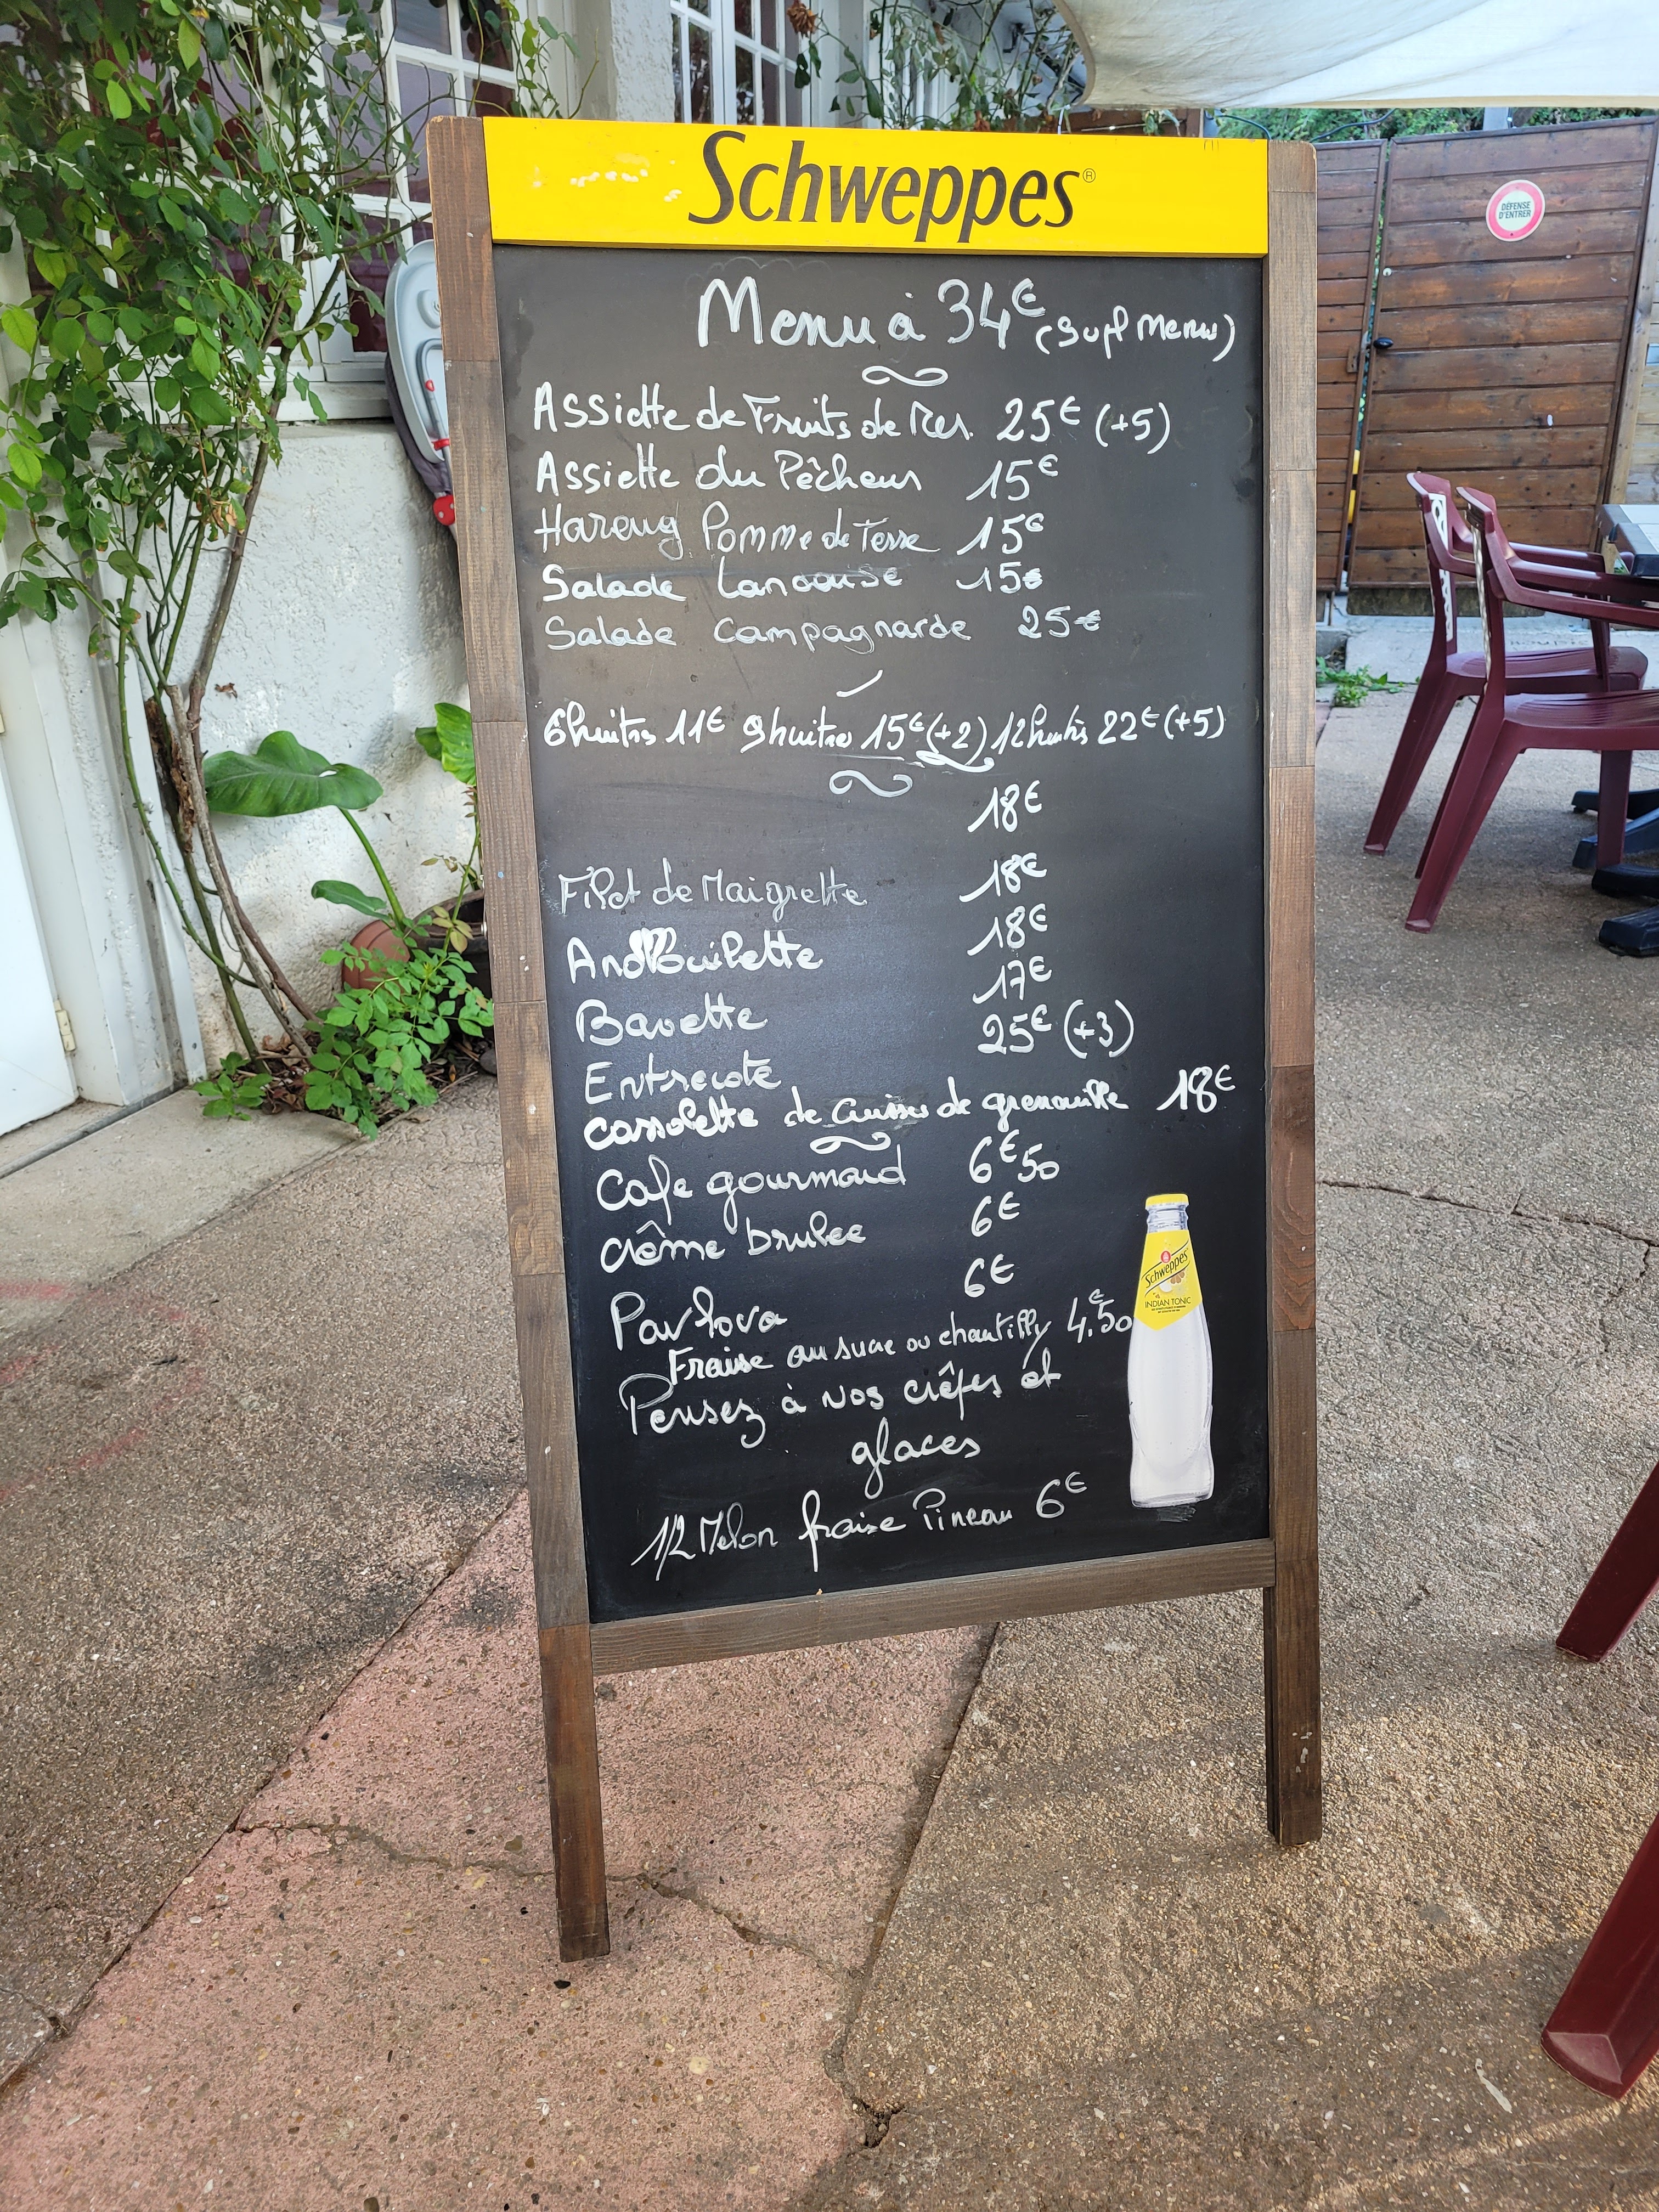 Schweppes®
DÉFENSE
D'ENTRER
Menu à 34€ (Supl Menu)
Assiette de Fruits de Mer 25€ (+5)
Assiette du Pêcheur 15€
Hareng Pomme de Terre 15€
Salade Landaise 15€
Salade Campagnarde 25€
6 huitres 11€ 9 huitres 15€ (+2) 12 huitres 22€ (+5)
18€
Filet de Maigrette 18€
Andouillette 18€
Bavette 17€
Entrecote 25€ (+3)
Cassolette de Cuisses de grenouille 18€
Cafe gourmand 6€50
Crême brulee 6€
Pavlova 6€
Fraise au sucre ou chantilly 4.50€
Pensez à Nos crêpes et
glaces
1/2 Melon fraise Pineau 6€
Schweppes
INDIAN TONIC